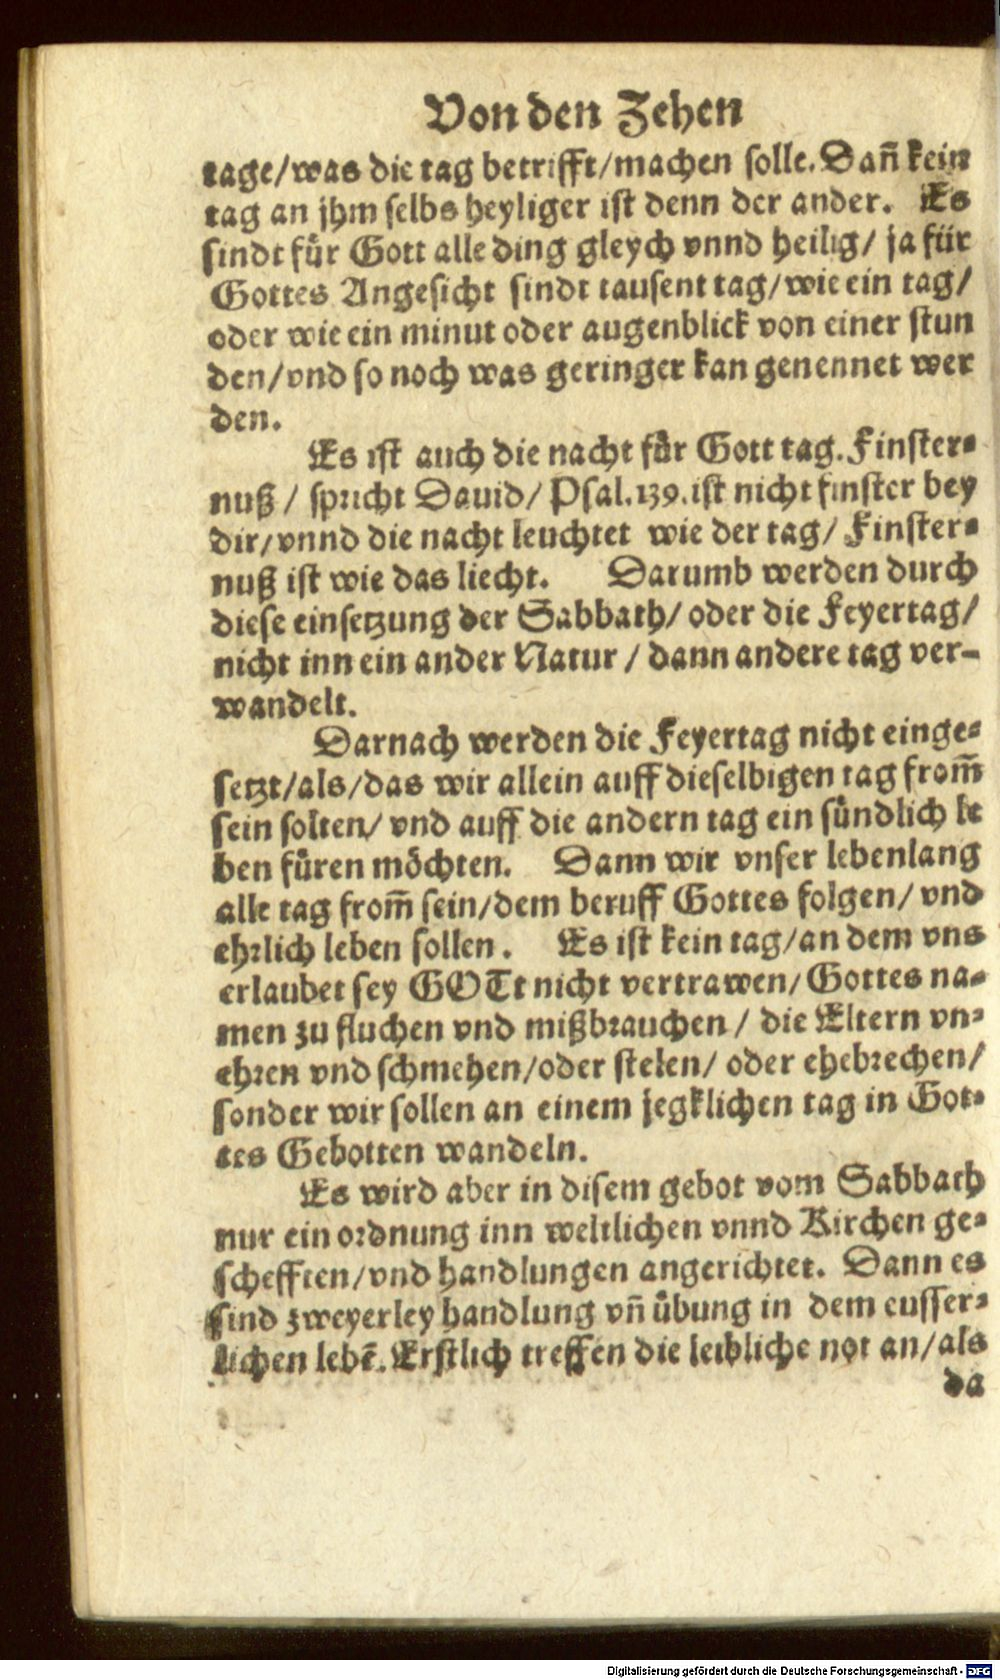 Von den Zehen
tage/was die tag betrifft/machen solle. Dañ kein
tag an jhm selbs heyliger ist denn der ander. Es
sindt für Gott alle ding gleych vnnd heilig/ ja für
Gottes Angesicht sindt tausent tag/wie ein tag/
oder wie ein minut oder augenblick von einer stun
den/vnd so noch was geringer kan genennet wer
den.
Es ist auch die nacht für Gott tag. Finster-
nuß / spricht Dauid/ Psal.139.ist nicht finster bey
dir/vnnd die nacht leuchtet wie der tag/ Finster-
nuß ist wie das liecht. Darumb werden durch
diese einsetzung der Sabbath/ oder die Feyertag/
nicht inn ein ander Natur / dann andere tag ver-
wandelt.
Darnach werden die Feyertag nicht einge-
setzt/als/das wir allein auff dieselbigen tag from̃
sein solten/ vnd auff die andern tag ein sündlich le
ben füren möchten. Dann wir vnser lebenlang
alle tag from̃ sein/dem beruff Gottes folgen/ vnd
ehrlich leben sollen. Es ist kein tag/an dem vns
erlaubet sey GOTt nicht vertrawen/Gottes na-
men zu fluchen vnd mißbrauchen / die Eltern vn-
ehren vnd schmehen/oder stelen/ oder ehebrechen/
sonder wir sollen an einem jegklichen tag in Got-
tes Gebotten wandeln.
Es wird aber in disem gebot vom Sabbath
nur ein ordnung inn weltlichen vnnd Kirchen ge-
schefften/vnd handlungen angerichtet. Dann es
sind zweyerley handlung vñ übung in dem eusser-
lichen lebẽ. Erstlich treffen die leibliche not an/als
da
Digitalisierung gefördert durch die Deutsche Forschungsgemeinschaft - DFG